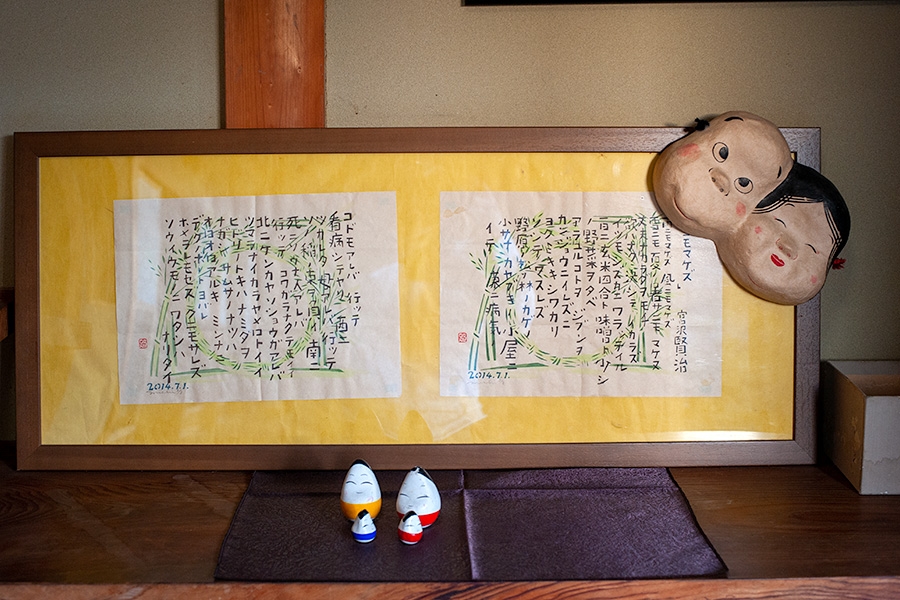 宮沢賢治
風ニモマケズ
夏ノ暑サニモ マケヌ
欲ハナク 決シテイカラズ
イツモシズカニ ワラッテイル
一日ニ玄米四合ト 味噌ト少シ
ノ野菜ヲタベ
アラユルコトヲ ジブンヲ
カンジョウニイレズニ
ヨクミキキシワカリ
ソシテワスレズ
野原ノ松ノ林ノカゲノ
小サナカヤブキノ小屋ニ
イテ 東ニ病気ノ
2014.7.1.
コドモアレバ 行ッテ
看病シテヤリ 西ニ
ツカレタ母アレバ 行ッテ
ソノ稲ノ束ヲ負イ 南ニ
死ニソウナ人アレバ
行ッテ コワガラナクテモイイ
北ニケンカヤソショウガアレバ
ツマラナイカラヤメロトイイ
ヒドリノトキハナミダヲ
ナガシ サムサノナツハ
オロオロアルキ ミンナニ
デクノボートヨバレ
ホメラレモセズ クニモサレズ
ソウイウモノニ ワタシハ ナリタイ
2014.7.1.